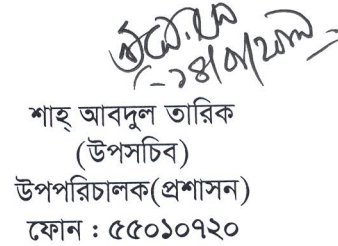 শাহ্ আবদুল তারিক
(উপসচিব)
উপপরিচালক(প্রশাসন)
ফোন : ৫৫০১০৭২০